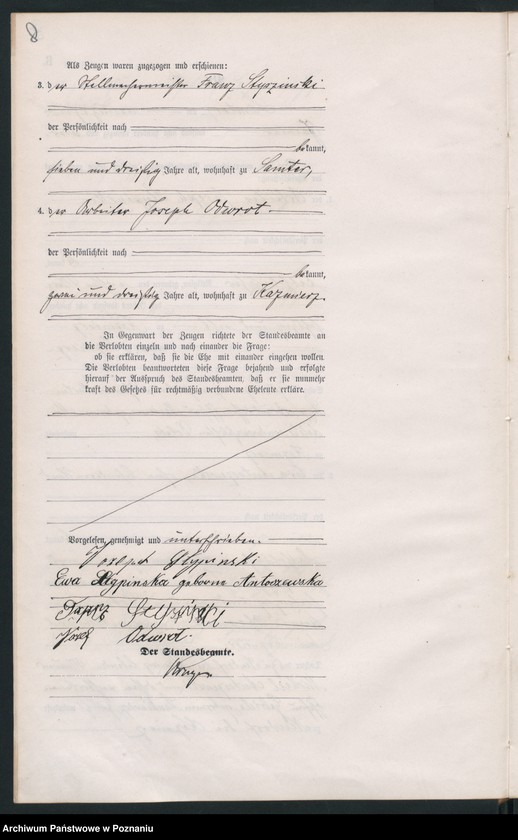 8
Als Zeugen waren zugezogen und erschienen:
3. der Stellmachermeister Franz Styszinski
der Persönlichkeit nach
bekannt,
sieben und dreißig Jahre alt, wohnhaft zu Samter,
4. der Arbeiter Joseph Odwrot.
der Persönlichkeit nach
bekannt,
zwei und dreißig Jahre alt, wohnhaft zu Kazmierz.
In Gegenwart der Zeugen richtete der Standesbeamte an
die Verlobten einzeln und nach einander die Frage:
ob sie erklären, daß sie die Ehe mit einander eingehen wollen.
Die Verlobten beantworteten diese Frage bejahend und erfolgte
hierauf der Ausspruch des Standesbeamten, daß er sie nunmehr
kraft des Gesetzes für rechtmäßig verbundene Eheleute erkläre.
Vorgelesen, genehmigt und unterschrieben.
Joseph
Ewa geborne Antoszewska
Franz
Józef Odwrot.
Der Standesbeamte.
Archiwum Państwowe w Poznaniu